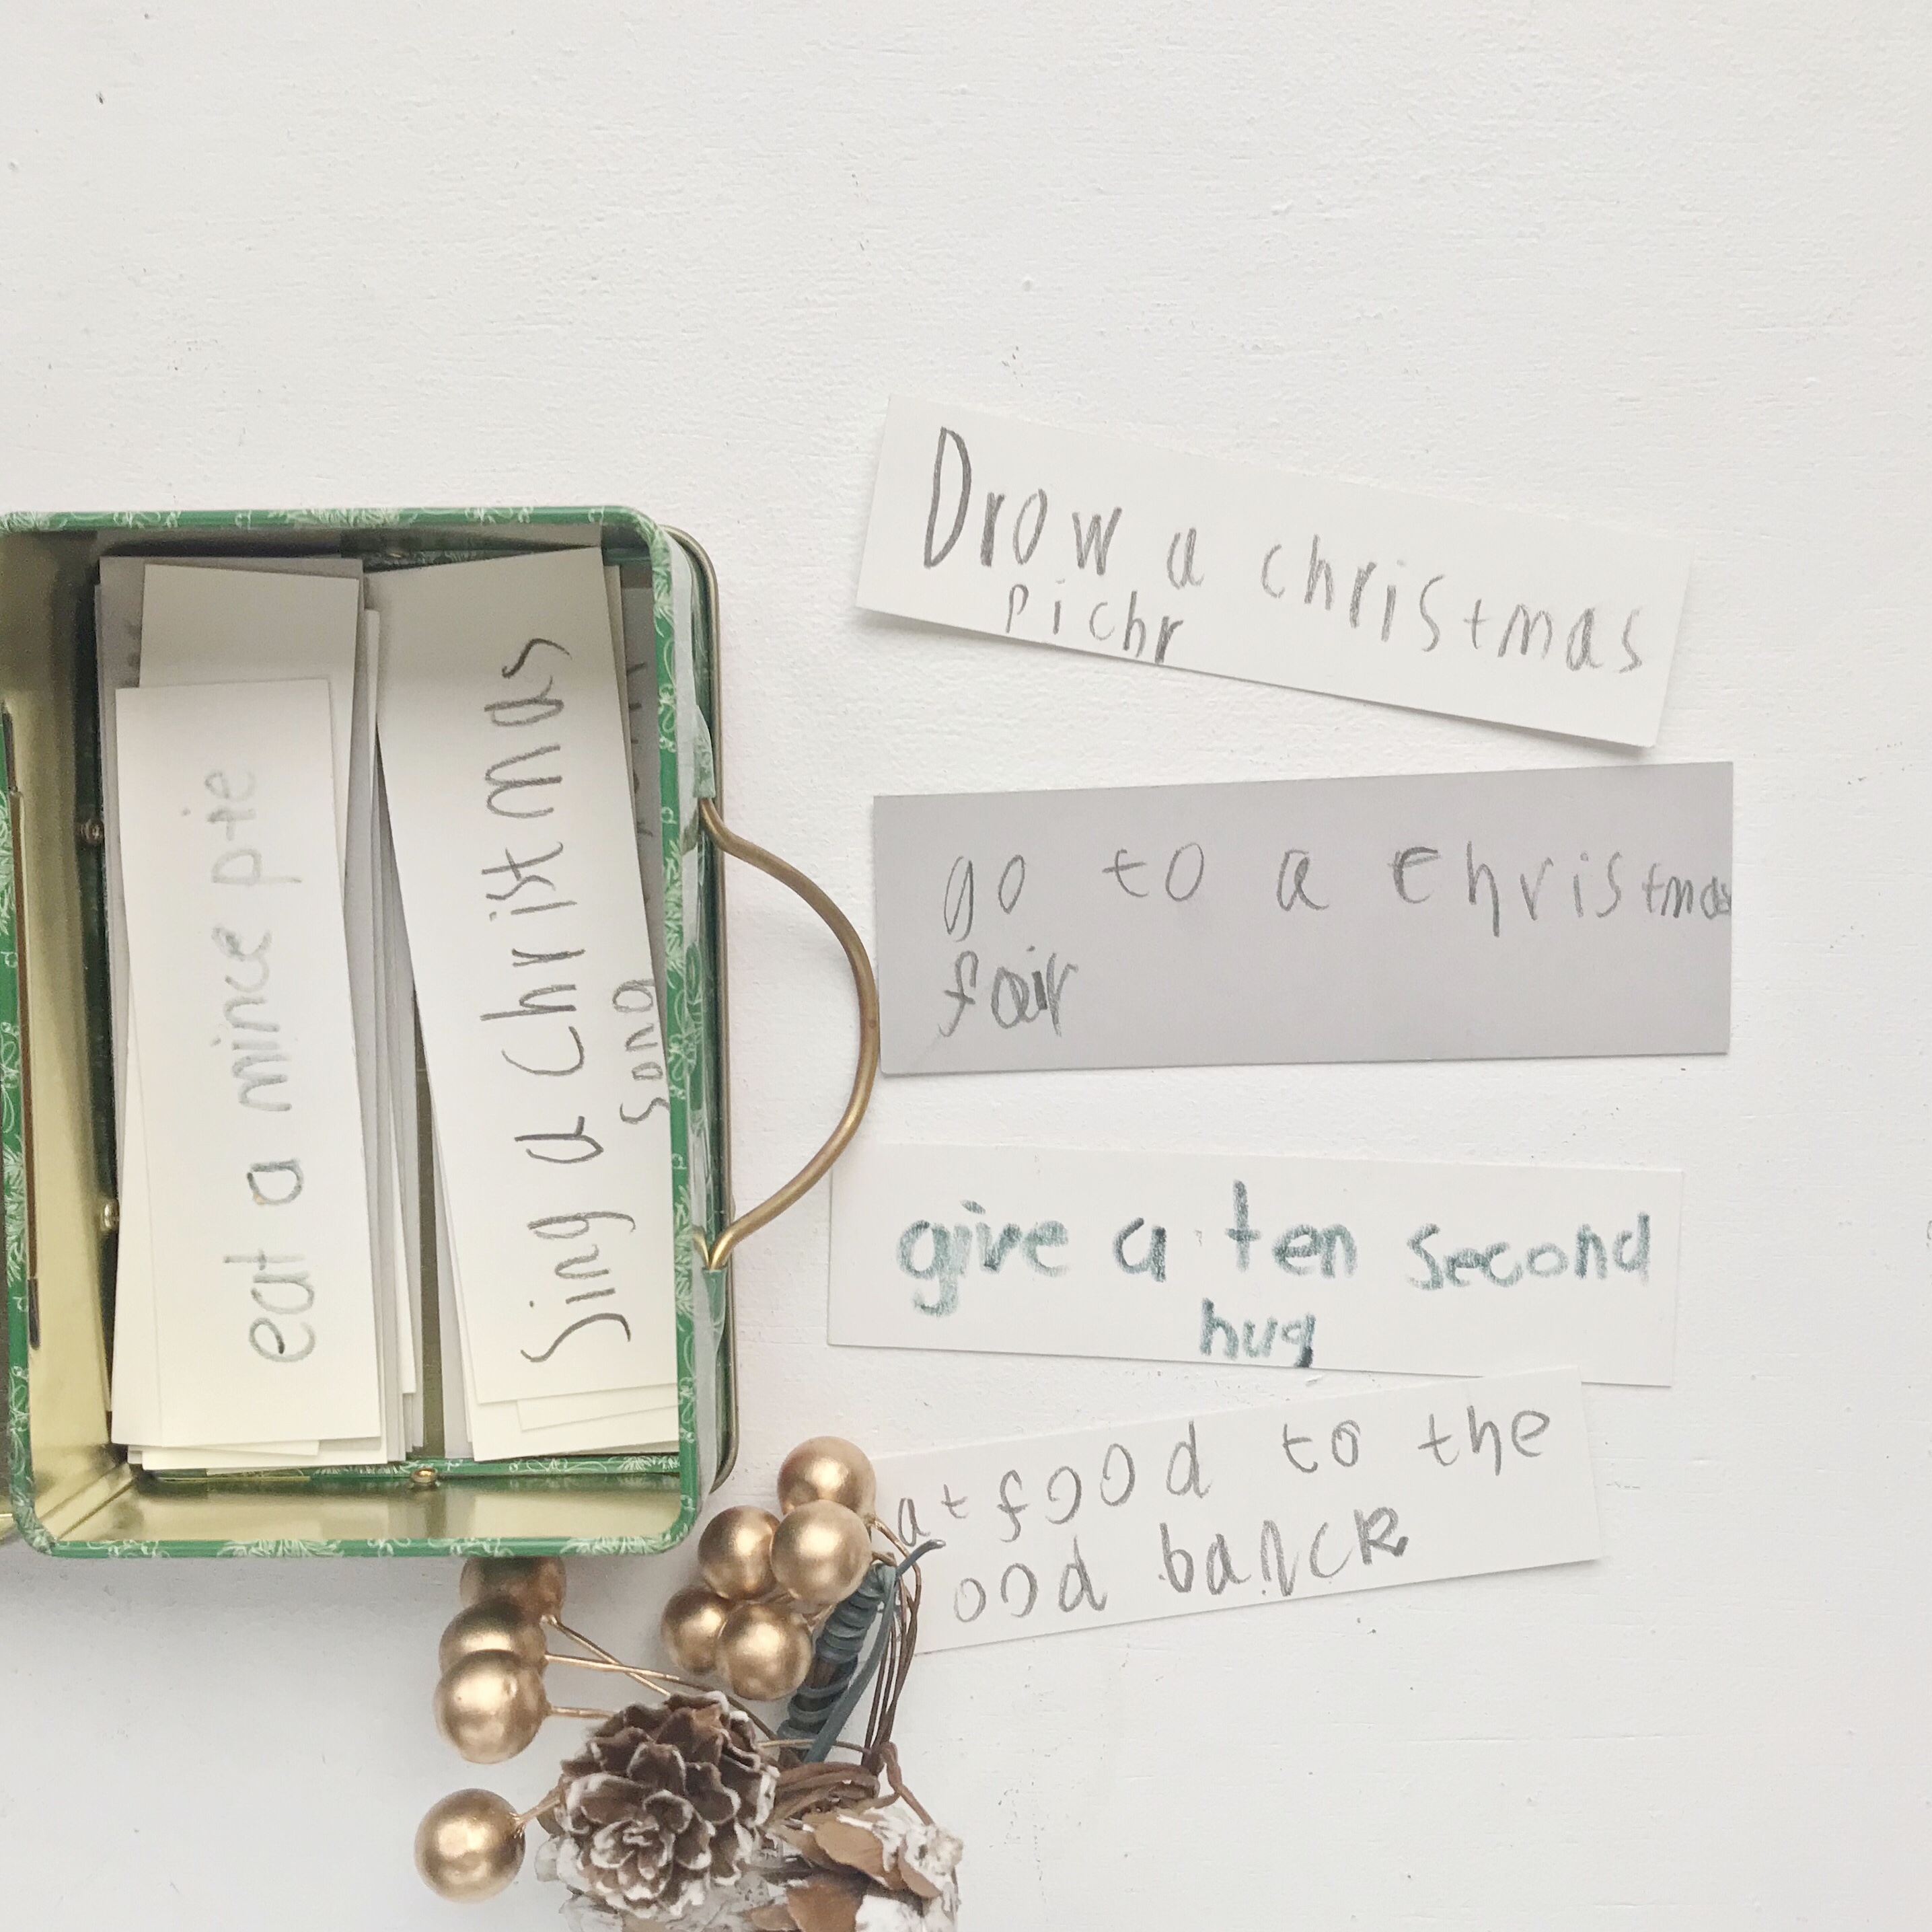 eat a mince pie
Sing a Christmas
song
Drow a christmas
pichr
go to a christmas
fair
give a ten second
hug
at food to the
ood banck